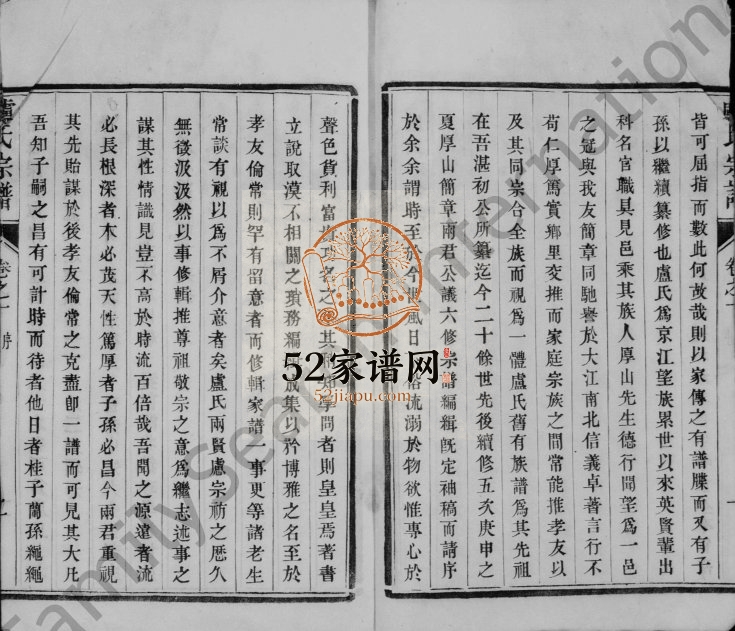 皆可屈指而數此何故哉則以家傳之有譜牒而又有子
孫以繼續纂修也盧氏為京江望族累世以來英賢輩出
科名官職具見邑乘其族人厚山先生德行聞望為一邑
之冠與我友簡章同馳譽於大江南北信義卓著言行不
苟仁厚篤實鄉里交推而家庭宗族之間常能推孝友以
及其同宗合全族而視為一體盧氏舊有族譜為其先祖
在吾湛初公所纂迄今二十餘世先後續修五次庚申之
夏厚山簡章兩君公議六修宗譜編緝既定袖稿而請序
於余余謂時至於今世風日 俗流溺於物欲惟專心於
聲色貨利富 功名之 其 學問者則皇皇焉著書
立說取漠不相關之瑣務編 成集以矜博雅之名至於
孝友倫常則罕有留意者而修輯家譜一事更等諸老生
常談有視以為不屑介意者矣盧氏兩賢慮宗祊之歷久
無徵汲汲然以事修輯推尊祖敬宗之意為繼志述事之
謀其性情識見豈不高於時流百倍哉吾聞之源遠者流
必長根深者木必茂天性篤厚者子孫必昌今兩君重視
其先貽謀於後孝友倫常之克盡卽一譜而可見其大凡
吾知子嗣之昌有可計時而待者他日者桂子蘭孫繩繩
盧氏宗譜
卷之一 序
52家谱网
52jiapu.com
FamilySearch International